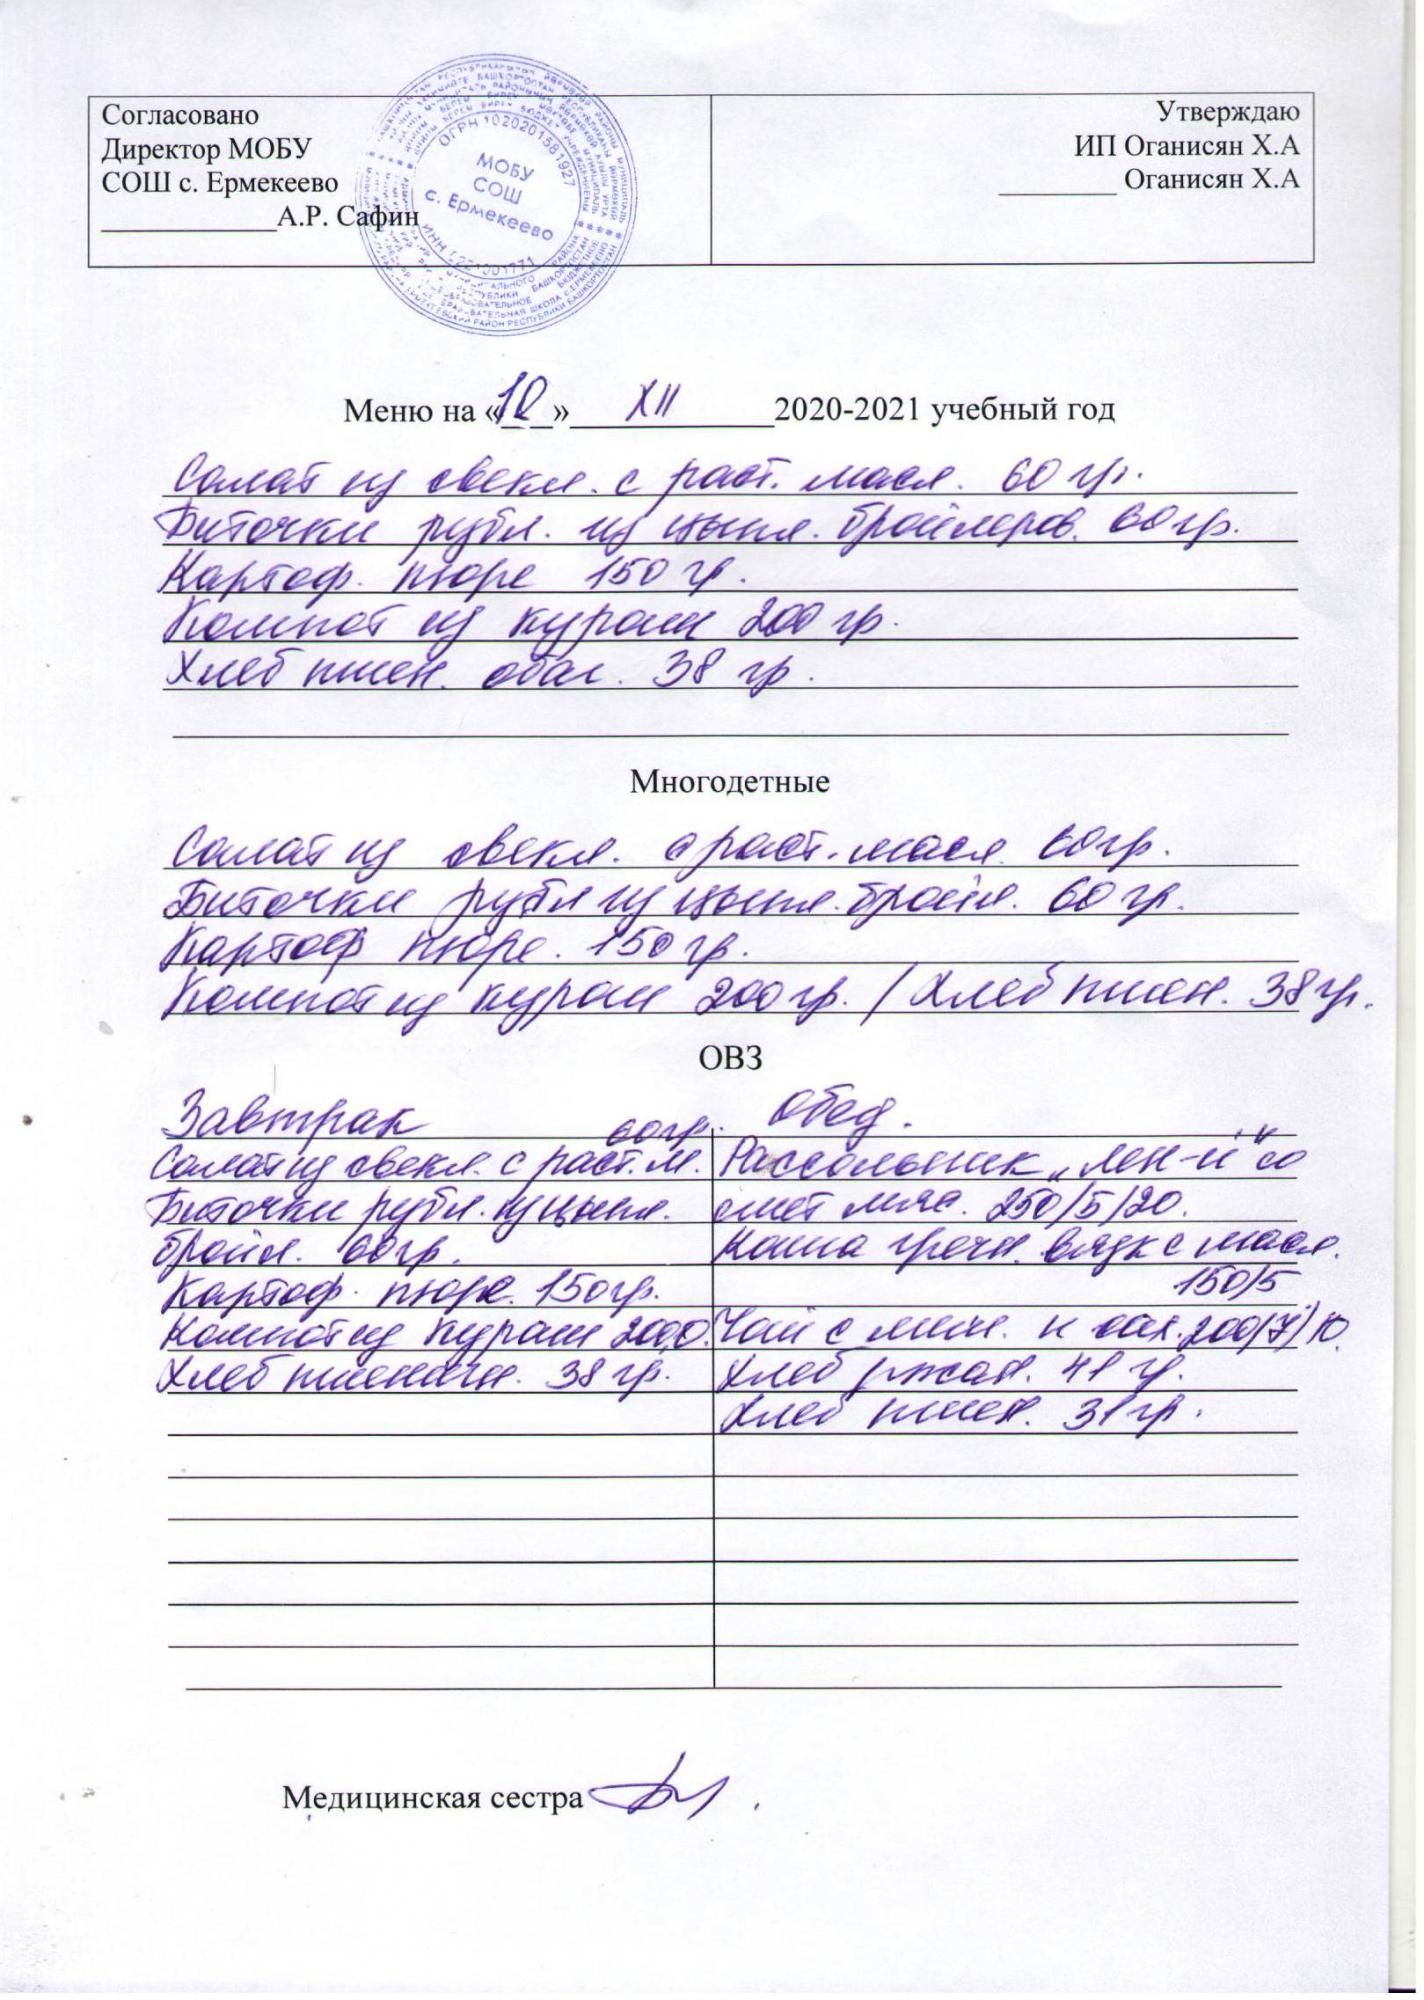 Согласовано
Директор МОБУ
СОШ с. Ермекеево
____________А.Р. Сафин
Утверждаю
ИП Оганисян Х.А
________ Оганисян Х.А
ОГРН 1020201581927
МОБУ
СОШ
с. Ермекеево
Меню на «10» XII 2020-2021 учебный год
Салат из свекл. с раст. масл. 60 гр.
Биточки рубл. из цыпл. бройлеров. 60 гр.
Картоф. пюре 150 гр.
Компот из кураги 200 гр.
Хлеб пшен. обог. 38 гр.
Многодетные
Салат из свекл. с раст. масл. 60 гр.
Биточки рубл из цыпл. бройл. 60 гр.
Картоф пюре. 150 гр.
Компот из кураги 200 гр. / Хлеб пшен. 38 гр.
ОВЗ
Завтрак
60 гр.
Салат из свекл. с раст. м.
Биточки рубл. из цыпл.
бройл. 60 гр.
Картоф. пюре. 150 гр.
Компот из кураги 200,0.
Хлеб пшеничн. 38 гр.
Обед.
Рассольник „Лен-й" со
смет мяс. 250/5/20.
Каша гречн. вязк с масл.
150/5
Чай с лим. и сах. 200/7/10.
Хлеб ржан. 41 гр.
Хлеб пшен. 31 гр.
Медицинская сестра